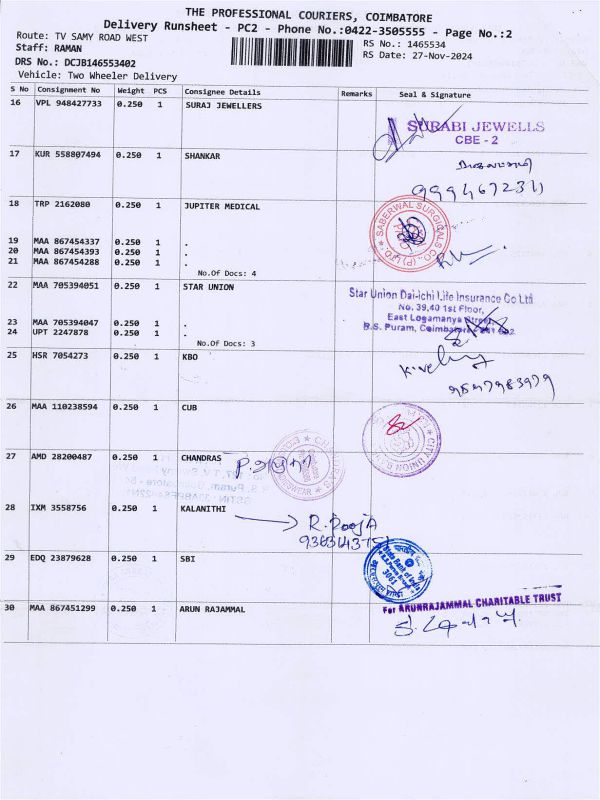 THE PROFESSIONAL COURIERS, COIMBATORE
Delivery Runsheet - PC2 - Phone No.:0422-3505555 - Page No.:2
Route: TV SAMY ROAD WEST
RS No.: 1465534
Staff: RAMAN
RS Date: 27-Nov-2024
DRS No.: DCJB146553402
Vehicle: Two Wheeler Delivery
S No Consignment No Weight PCS Consignee Details Remarks Seal & Signature
16 VPL 948427733 0.250 1 SURAJ JEWELLERS
SURABI JEWELLS
CBE - 2
17 KUR 558807494 0.250 1 SHANKAR
18 TRP 2162080 0.250 1 JUPITER MEDICAL
SABERWAL SURGICALS CO., (P) LTD.
19 MAA 867454337 0.250 1 .
20 MAA 867454393 0.250 1 .
21 MAA 867454288 0.250 1 .
No.Of Docs: 4
22 MAA 705394051 0.250 1 STAR UNION
Star Union Dai-ichi Life Insurance Co Ltd
No. 39,40 1st Floor,
East Logamanya Street,
R.S. Puram, Coimbatore
23 MAA 705394047 0.250 1 .
24 UPT 2247878 0.250 1 .
No.Of Docs: 3
25 HSR 7054273 0.250 1 KBO
26 MAA 110238594 0.250 1 CUB
CITY UNION
27 AMD 28200487 0.250 1 CHANDRAS
CHANDRAS
28 IXM 3558756 0.250 1 KALANITHI
R. PoojA
29 EDQ 23879628 0.250 1 SBI
State Bank of India
30 MAA 867451299 0.250 1 ARUN RAJAMMAL
For ARUNRAJAMMAL CHARITABLE TRUST